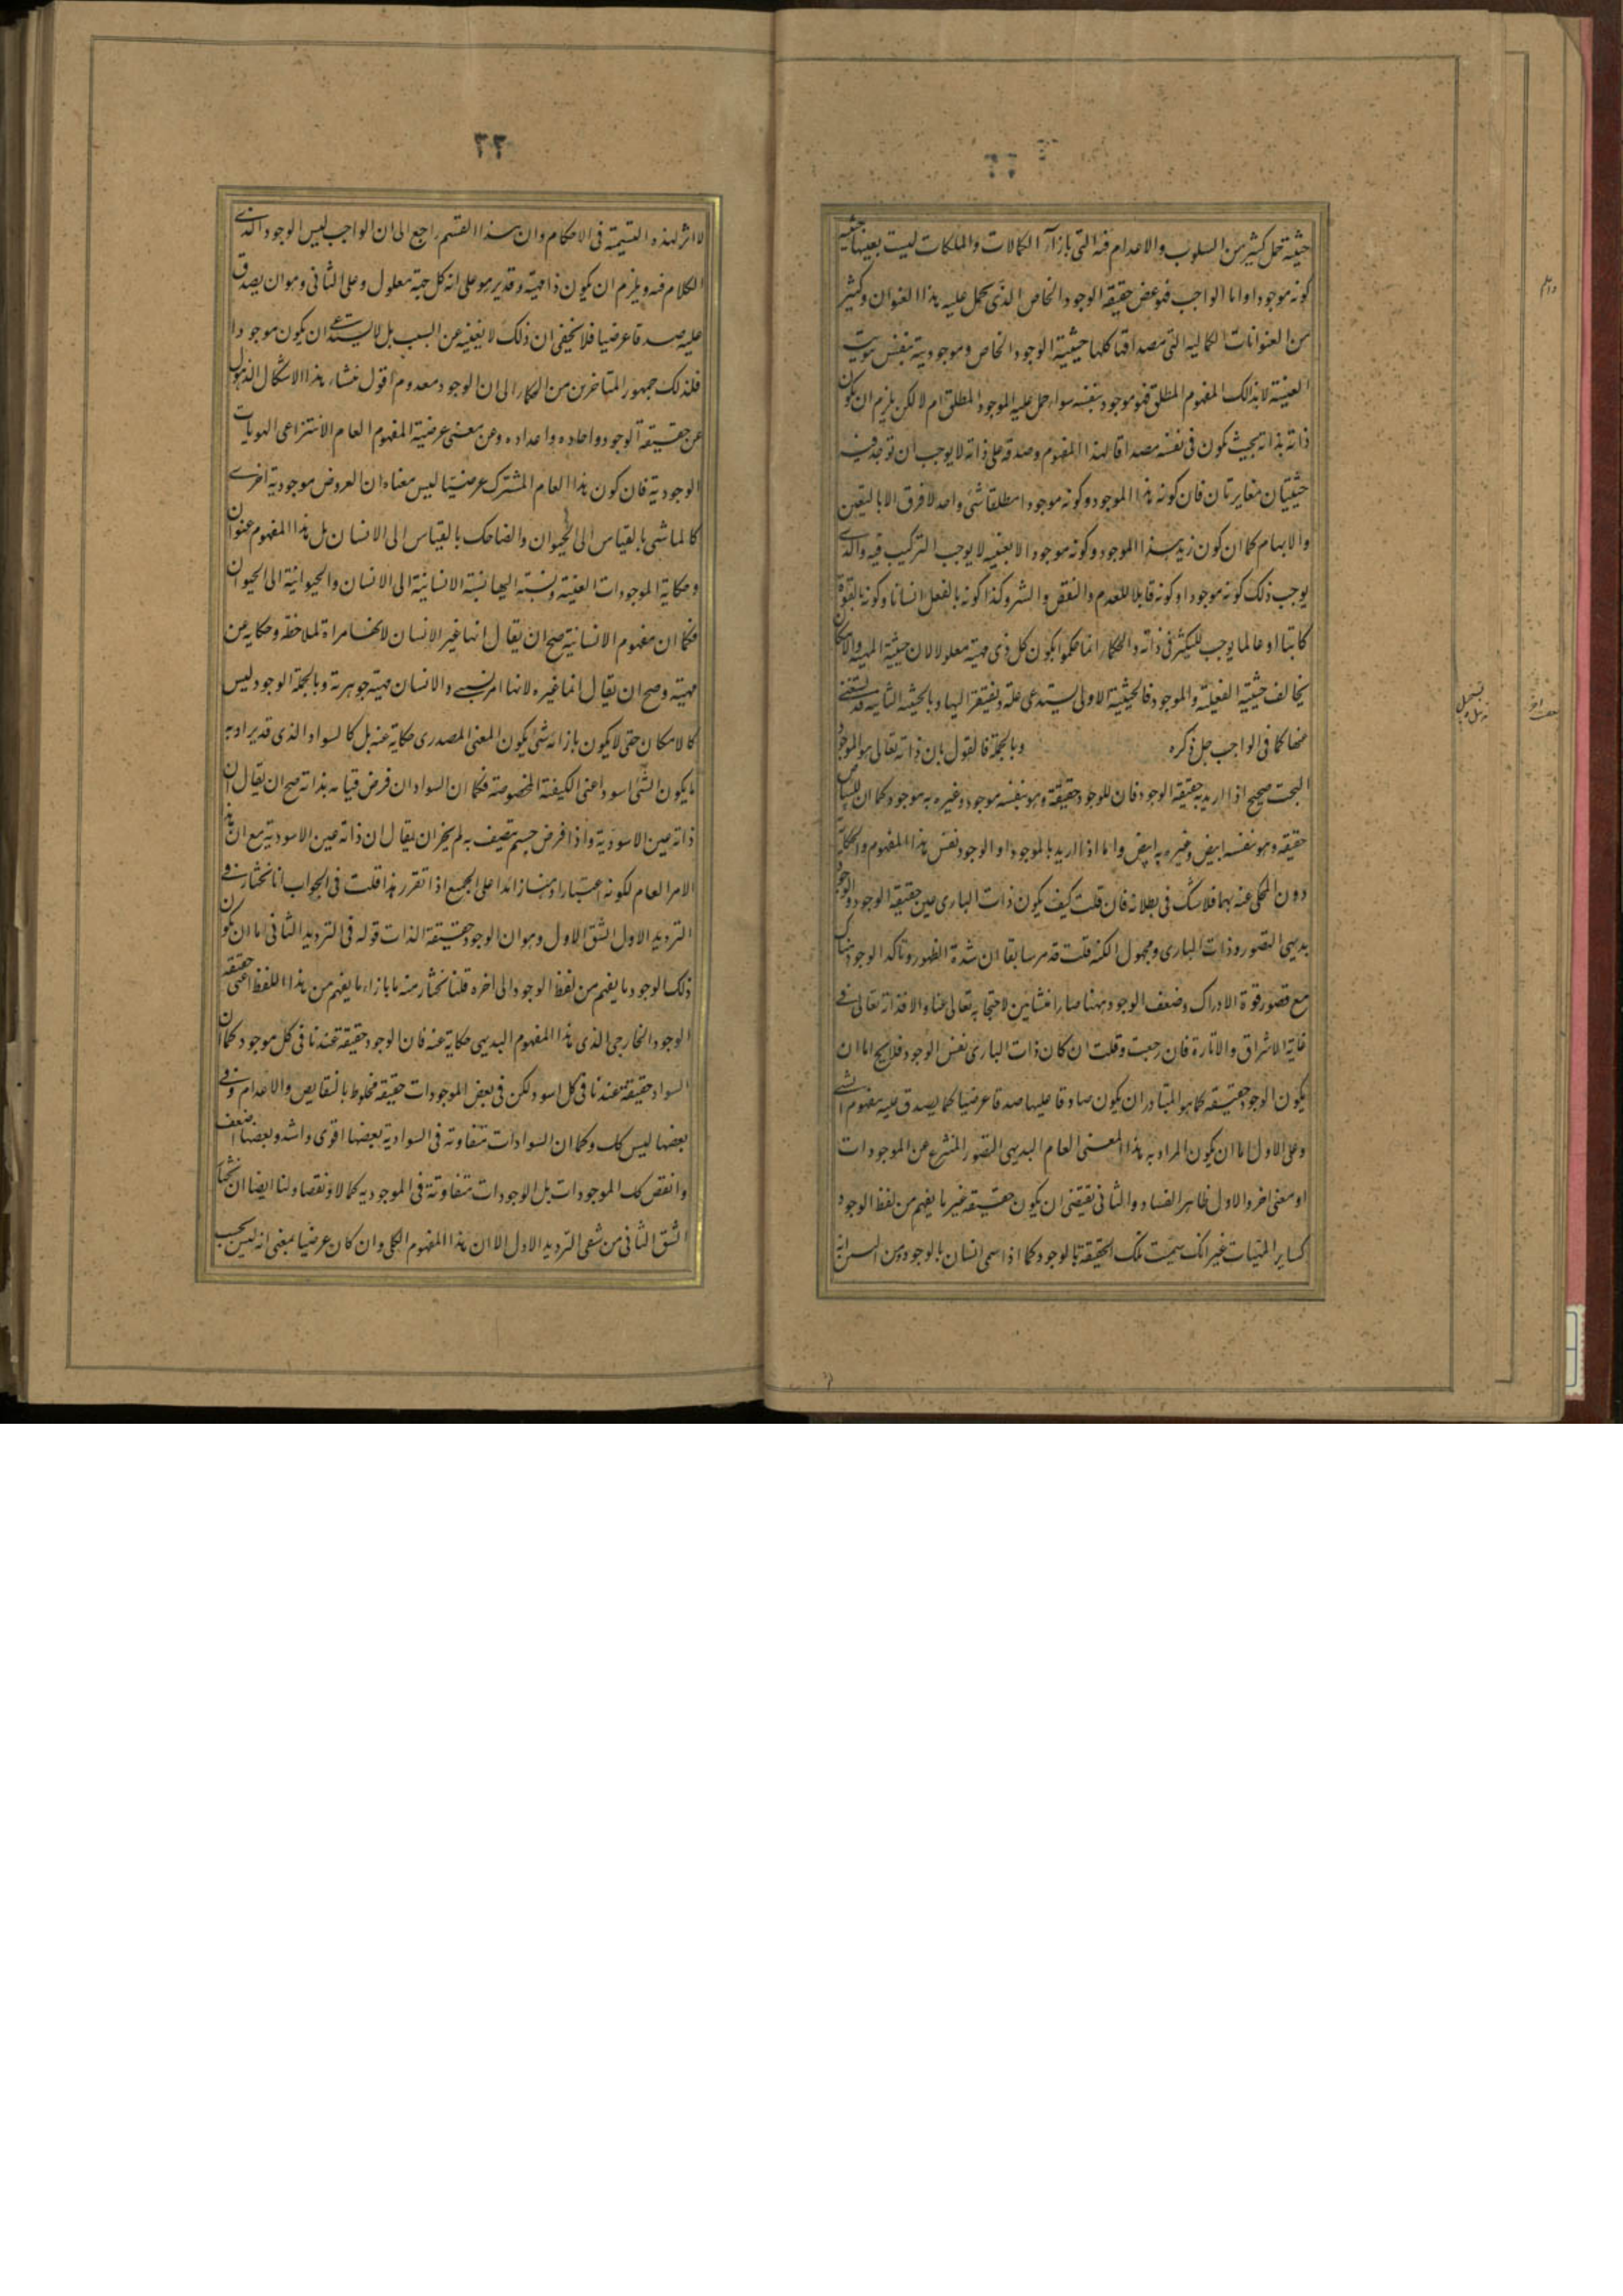 حيثية حمل كثير من السلوب والاعدام فيه التى بازاء الكمالات والملكات ليست بعينها حيثية
كونه موجودا واما الواجب فهو محض حقيقة الوجود الخاص الذى يحمل عليه هذا العنوان وكثير
من العنوانات الكمالية التى مصداقها كلها حيثية الوجود الخاص وموجوديته بنفس هويته
العينية لا بذلك المفهوم المطلق فهو موجود بنفسه سواء حمل عليه الموجود المطلق ام لا لكن يلزم ان يكون
ذاته بذاته بحيث يكون فى نفسه مصداقا لهذا المفهوم وصدقه على ذاته لا يوجب ان توجد فيه
حيثيتان متغايرتان فان كونه هذا الموجود وكونه موجودا مطلقا شئ واحد لا فرق الا بالتعين
والابهام كما ان كون زيد هذا الموجود وكونه موجودا لا بعينه لا يوجب التركيب فيه والذى
يوجب ذلك كونه موجودا وكونه قابلا للعدم والنقص والشر وكذا كونه بالفعل انسانا وكونه بالقوة
كاتبا او عالما يوجب التكثر فى ذاته والحكماء انما حكموا بكون كل ذى مهية معلولا لان حيثية المهية والامكان
يخالف حيثية الفعلية والموجود فالحيثية الاولى يستدعى علة ويفتقر اليها وبالحيثية الثانية قد يستغنى
عنها كما فى الواجب جل ذكره وبالجملة فالقول بان ذاته تعالى هو الموجود
البحت صحيح اذا اريد به حقيقة الوجود فان للوجود حقيقة وهو بنفسه موجود وغيره به موجود كما ان للبياض
حقيقة وهو بنفسه ابيض وغيره به ابيض واما اذا اريد بالموجود او الوجود نفس هذا المفهوم والحكاية
دون المحكى عنه بهما فلا شك فى بطلانه فان قلت كيف يكون ذات البارى عين حقيقة الوجود والوجود
بديهى التصور وذات البارى مجهول الكنه قلت قد مر سابقا ان شدة الظهور وتاكد الوجود هناك
مع قصور قوة الادراك وضعف الوجود ههنا صارا منشاين لاحتجابه تعالى عنا والا فذاته تعالى فى
غاية الاشراق والانارة فان رجعت وقلت ان كان ذات البارى نفس الوجود فلا يخ اما ان
يكون الوجود حقيقته كما هو المتبادر ان يكون صادقا عليها صدقا عرضيا كما يصدق عليه مفهوم الشئ
وعلى الاول اما ان يكون المراد به هذا المعنى العام البديهى التصور المنتزع عن الموجودات
او معنى اخر والاول ظاهر الفساد والثانى يقتضى ان يكون حقيقته غير ما يفهم من لفظ الوجود
كساير المهيات غير انك سميت تلك الحقيقة بالوجود كما اذا سمى انسان بالوجود ومن البين انه
٢٢
لا اثر لهذه التسمية فى الاحكام وان هذا القسم راجع الى ان الواجب ليس الوجود الذى
الكلام فيه ويلزم ان يكون ذا مهية وقد برهن على انه كل ذى مهية معلول وعلى الثانى وهو ان يصدق
عليه صدقا عرضيا فلا يخفى ان ذلك لا يغنيه عن السبب بل لا يستدعى ان يكون موجودا
فلذلك جمهور المتاخرين من الحكماء الى ان الوجود معدوم اقول منشاء هذا الاشكال الذهول
عن حقيقة الوجود واحاده واعداده وعن معنى عرضية المفهوم العام الانتزاعى الهويات
الوجودية فان كون هذا العام المشترك عرضيا ليس معناه ان للعروض موجودية اخرى
كالماشى بالقياس الى الحيوان والضاحك بالقياس الى الانسان بل هذا المفهوم عنوان
وحكاية الموجودات العينية ونسبته اليها نسبة الانسانية الى الانسان والحيوانية الى الحيوان
فكما ان مفهوم الانسانية صح ان يقال انها غير الانسان لانها مراة لملاحظة وحكاية عن
مهيته وصح ان يقال انها غيره لانها امر نسبى والانسان مهية جوهرية وبالجملة الوجود ليس
كالامكان حتى لا يكون بازائه شئ يكون المعنى المصدرى حكاية عنه بل كالسواد الذى قد يراد به
ما يكون الشئ اسود اعنى الكيفية المخصوصة فكما ان السواد ان فرض قيامه بذاته صح ان يقال ان
ذاته عين الاسودية واذا فرض جسم متصف به لم يجز ان يقال ان ذاته عين الاسودية مع ان هذا
الامر العام لكونه اعتبارا ذهنيا زائدا على الجميع اذا تقرر هذا قلت فى الجواب انا نختار فى
الترديد الاول الشق الاول وهو ان الوجود حقيقة الذات قوله فى الترديد الثانى اما ان يكون
ذلك الوجود ما يفهم من لفظ الوجود الى اخره قلنا نختار منه ما بازاء ما يفهم من هذا اللفظ اعنى حقيقة
الوجود الخارجى الذى هذا المفهوم البديهى حكاية عنه فان الوجود حقيقة عندنا فى كل موجود كما ان
السواد حقيقة عندنا فى كل اسود لكن فى بعض الموجودات حقيقة مخلوط بالنقايص والاعدام وفى
بعضها ليس كك وكما ان السوادات متفاوتة فى السوادية بعضها اقوى واشد وبعضها اضعف
وانقص كك الموجودات بل الوجودات متفاوتة فى الموجودية كمالا ونقصا ولنا ايضا ان نختار
الشق الثانى من شقى الترديد الاول الا ان هذا المفهوم الكلى وان كان عرضيا بمعنى انه ليس بحسب